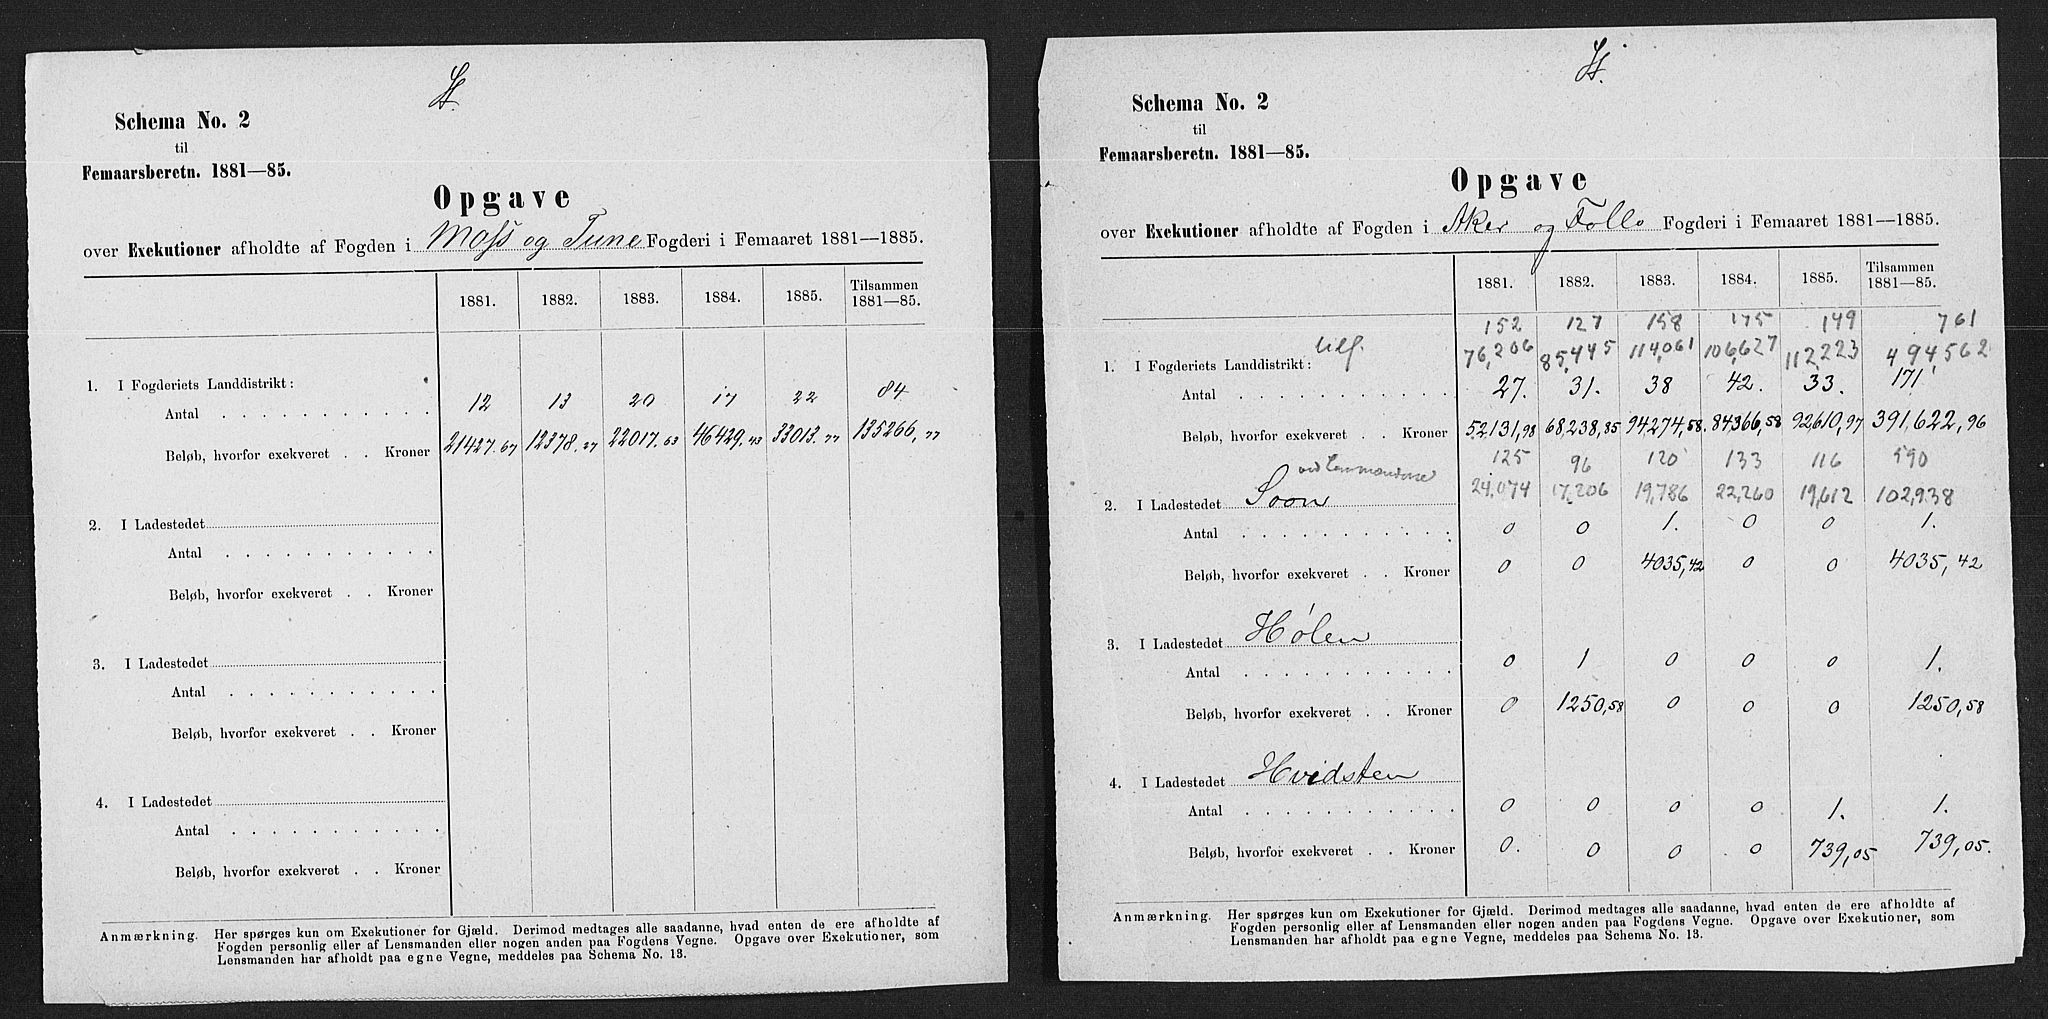 Schema No. 2
til
Femaarsberetn. 1881—85.
Opgave
over Exekutioner afholdte af Fogden i Moss og Tune Fogderi i Femaaret 1881—1885.
1881. 1882. 1883. 1884. 1885. Tilsammen 1881—85.
1. I Fogderiets Landdistrikt:
Antal . . . . . . . . . . . 12 13 20 17 22 84
Beløb, hvorfor exekveret . . Kroner 21427.67 12378.27 22017.63 46429.43 33013.77 135266,77
2. I Ladestedet
Antal . . . . . . . . . . .
Beløb, hvorfor exekveret . . Kroner
3. I Ladestedet
Antal . . . . . . . . . . .
Beløb, hvorfor exekveret . . Kroner
4. I Ladestedet
Antal . . . . . . . . . . .
Beløb, hvorfor exekveret . . Kroner
Anmærkning. Her spørges kun om Exekutioner for Gjæld. Derimod medtages alle saadanne, hvad enten de ere afholdte af
Fogden personlig eller af Lensmanden eller nogen anden paa Fogdens Vegne. Opgave over Exekutioner, som
Lensmanden har afholdt paa egne Vegne, meddeles paa Schema No. 13.
Schema No. 2
til
Femaarsberetn. 1881—85.
Opgave
over Exekutioner afholdte af Fogden i Aker og Follo Fogderi i Femaaret 1881—1885.
1881. 1882. 1883. 1884. 1885. Tilsammen 1881—85.
152 127 158 175 149 761
76,206 85,445 114,061 106,627 112,223 494,562
1. I Fogderiets Landdistrikt:
Antal . . . . . . . . . . . 27. 31. 38 42. 33. 171
Beløb, hvorfor exekveret . . Kroner 52131,98 68,238,85 94274,58 84366,58 92610,97 391,622,96
125 96 120 133 116 590
ved Lensmændene
24,074 17,206 19,786 22,260 19,612 102,938
2. I Ladestedet Soon
Antal . . . . . . . . . . . 0 0 1. 0 0 1.
Beløb, hvorfor exekveret . . Kroner 0 0 4035,42 0 0 4035,42
3. I Ladestedet Hølen
Antal . . . . . . . . . . . 0 1 0 0 0 1.
Beløb, hvorfor exekveret . . Kroner 0 1250,58 0 0 0 1250,58
4. I Ladestedet Hvidsten
Antal . . . . . . . . . . . 0 0 0 0 1. 1.
Beløb, hvorfor exekveret . . Kroner 0. 0 0 0 739,05 739,05.
Anmærkning. Her spørges kun om Exekutioner for Gjæld. Derimod medtages alle saadanne, hvad enten de ere afholdte af
Fogden personlig eller af Lensmanden eller nogen anden paa Fogdens Vegne. Opgave over Exekutioner, som
Lensmanden har afholdt paa egne Vegne, meddeles paa Schema No. 13.